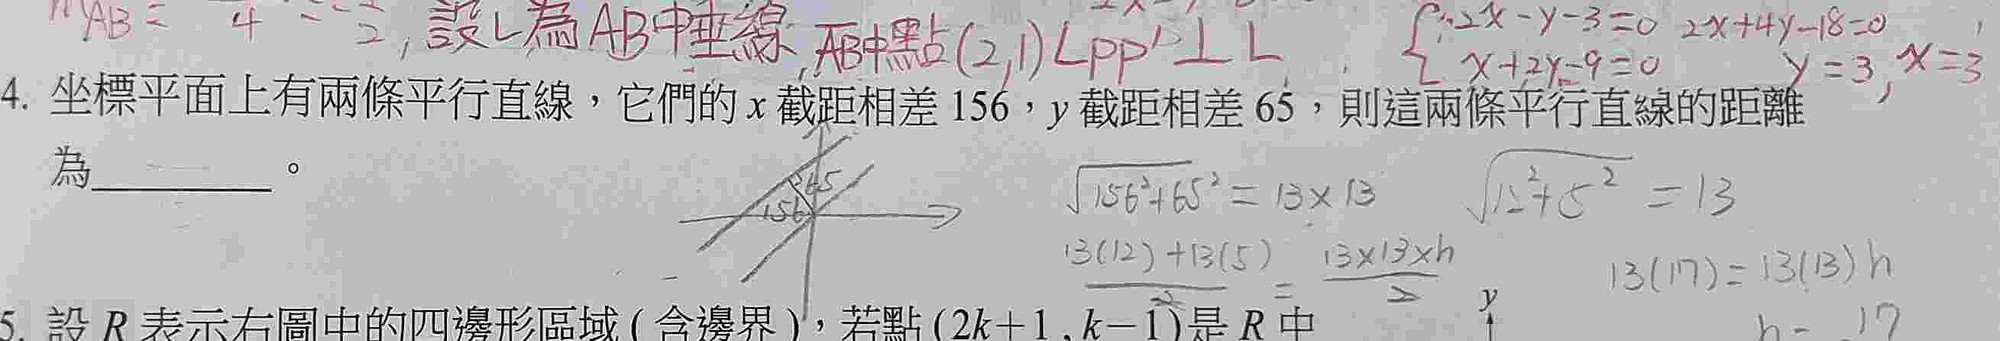 m AB = 4 = 2, 設L為AB中垂線, AB中點(2,1) L PP'⊥L
2x-y-3=0 2x+4y-18=0
x+2y-9=0 y=3, x=3
4. 坐標平面上有兩條平行直線，它們的 x 截距相差 156，y 截距相差 65，則這兩條平行直線的距離
為________。
65
156
√156²+65² = 13×13 √12²+5² = 13
13(12)+13(5) / 2 = 13×13×h / 2 13(17)=13(13)h
h= 17
y
5. 設 R 表示右圖中的四邊形區域 ( 含邊界 )，若點 (2k+1 , k−1) 是 R 中